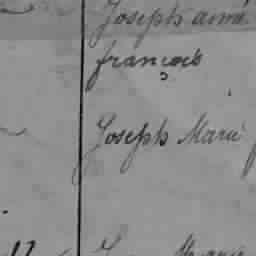 Joseph aimé
françois
Joseph Marie